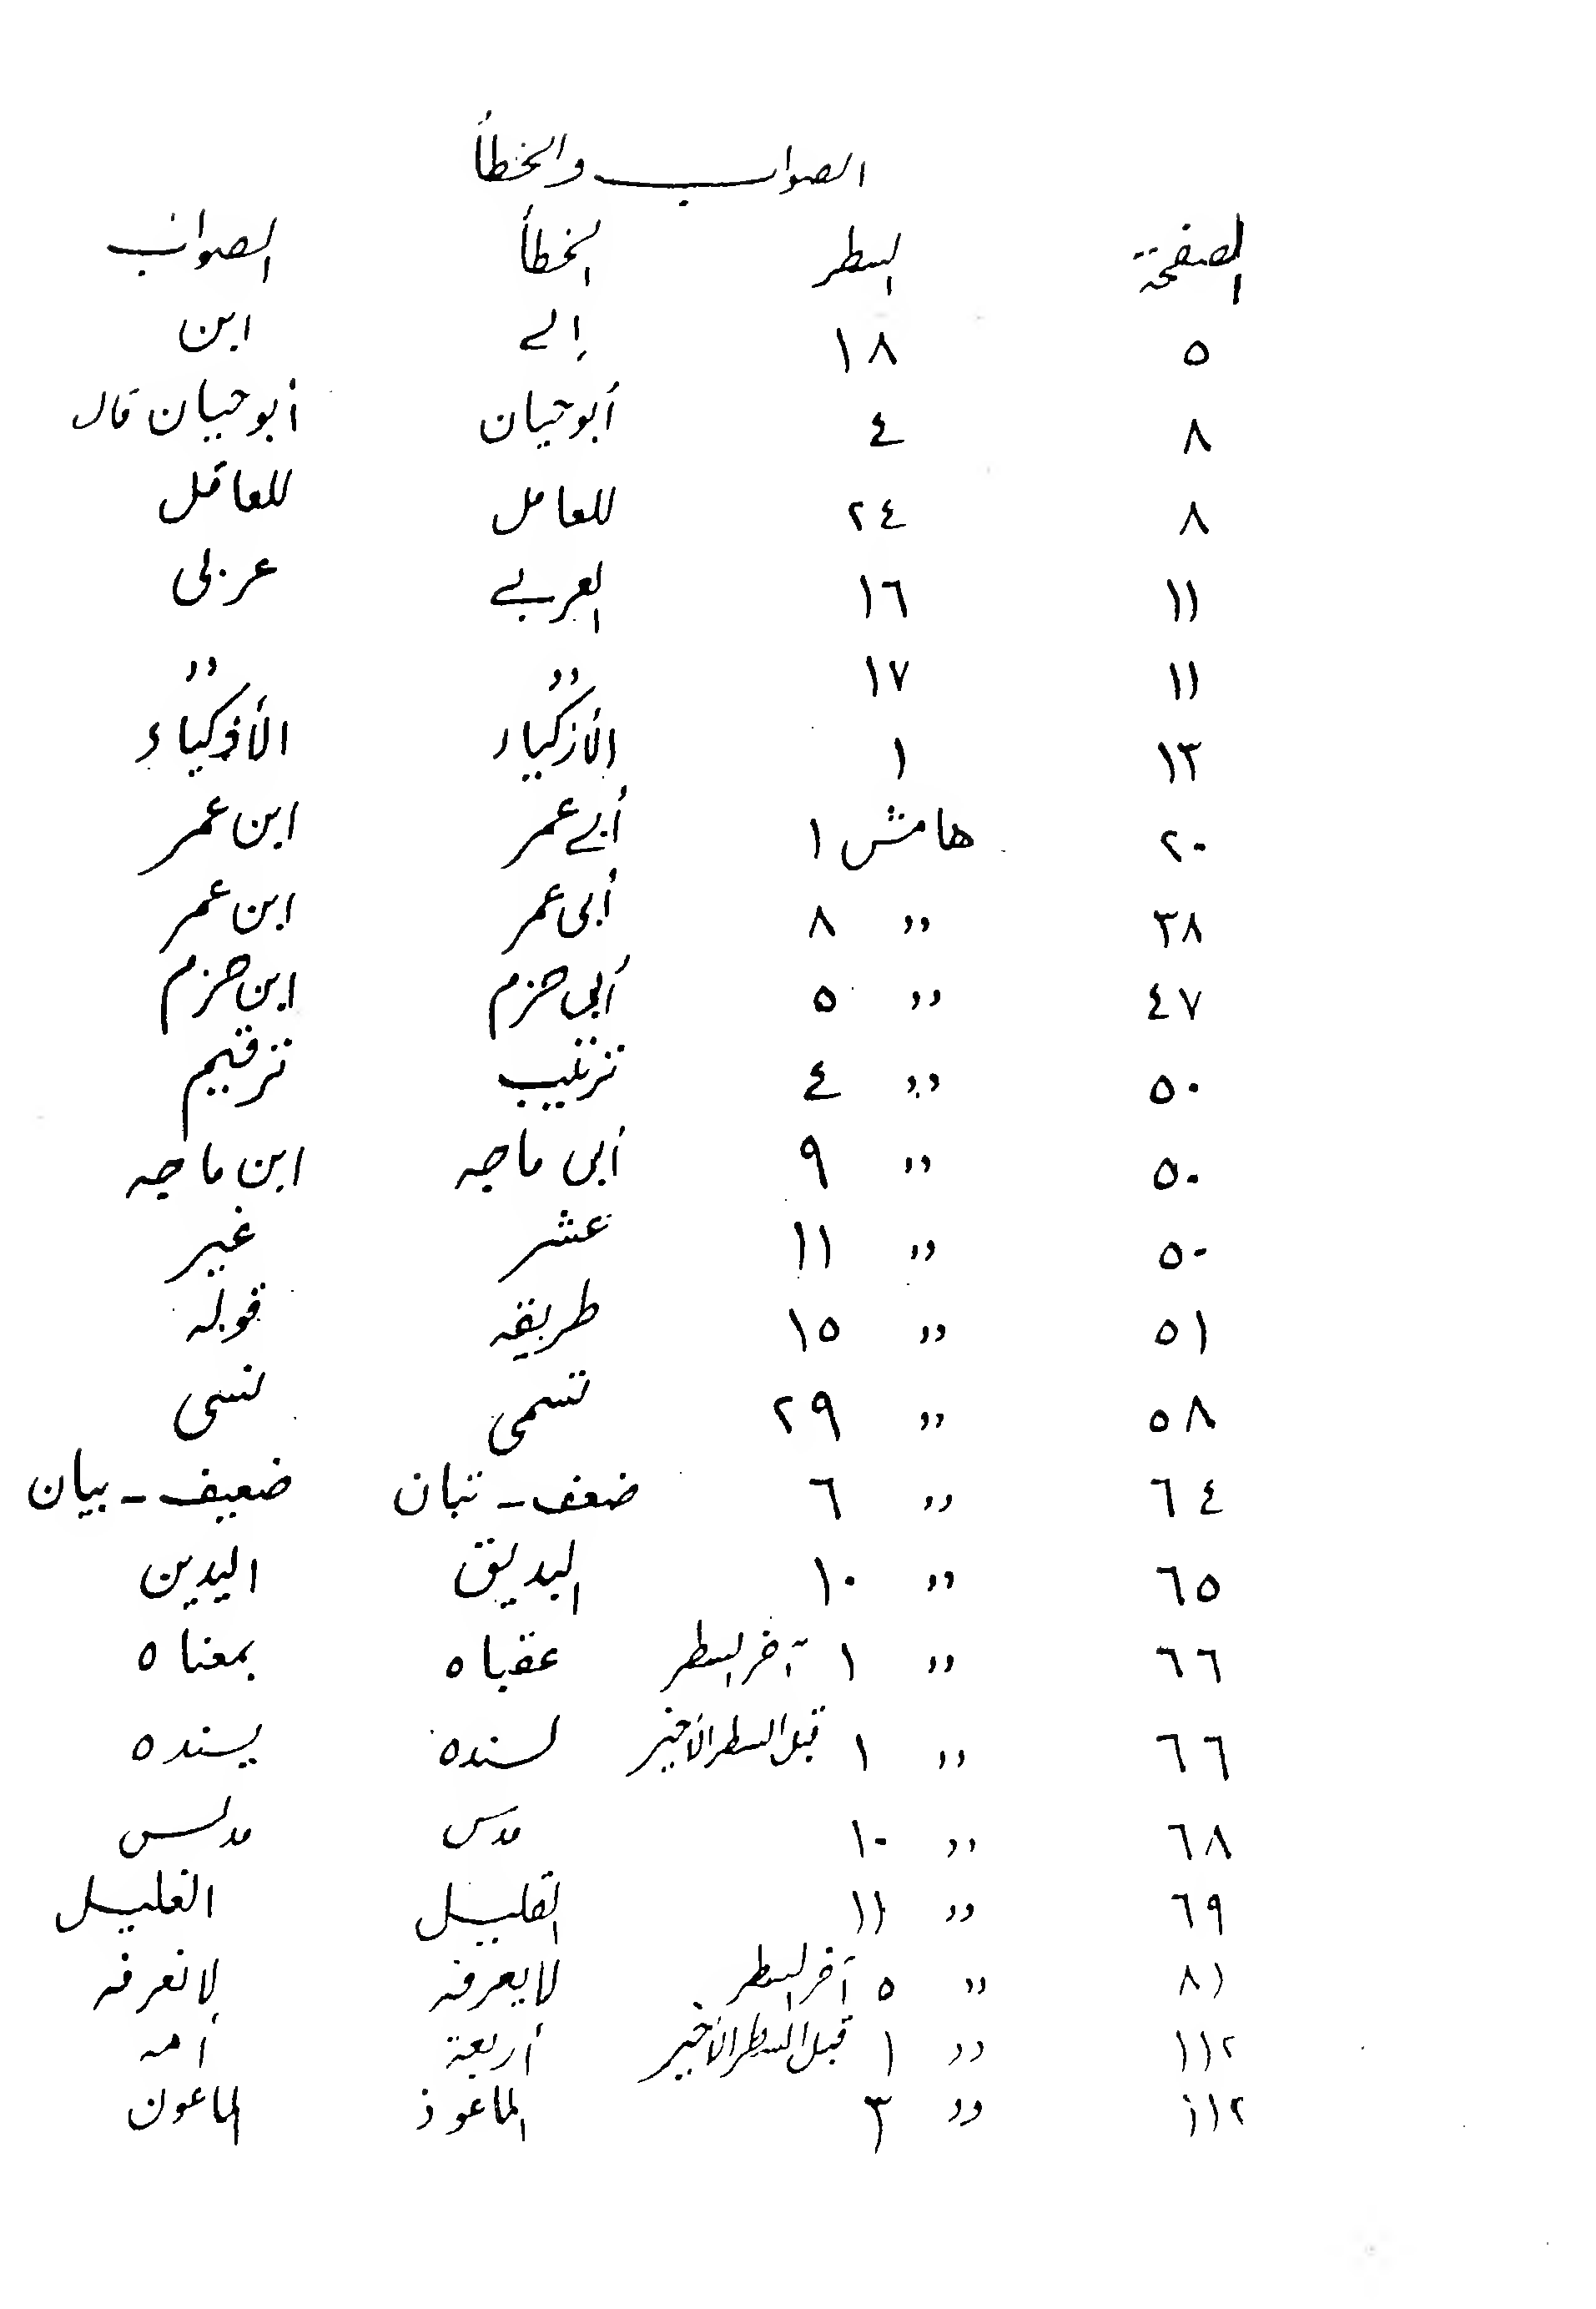 الصواب والخطأ
الصفحة السطر الخطأ الصواب
٥ ١٨ إلى ابن
٨ ٤ أبو حيان أبو حيان قال
٨ ٢٤ للعامل للعاقل
١١ ١٦ العربي عربى
١١ ١٧ ,, ,,
١٣ ١ الأزكياء الأذكياء
٢٠ هامش ١ أبي عمر ابن عمر
٣٨ ,, ٨ أبى عمر ابن عمر
٤٧ ,, ٥ أبى حزم ابن حزم
٥٠ ,, ٤ ترتيب ترقيم
٥٠ ,, ٩ أبى ماجه ابن ماجه
٥٠ ,, ١١ عشر غير
٥١ ,, ١٥ طريقه قوله
٥٨ ,, ٢٩ تسمى نسى
٦٤ ,, ٦ ضعف - تبان ضعيف - بيان
٦٥ ,, ١٠ اليديق اليدين
٦٦ ,, ١ آخر السطر عقباه بمعناه
٦٦ ,, ١ قبل السطر الأخير لسنده يسنده
٦٨ ,, ١٠ مدس مدلس
٦٩ ,, ١١ القليل الغليل
٨١ ,, ٥ آخر السطر لا يعرفه لا نعرفه
١١٢ ,, ١ قبل السطر الأخير أربعة أمه
١١٢ ,, ٣ الماعوذ الماعون